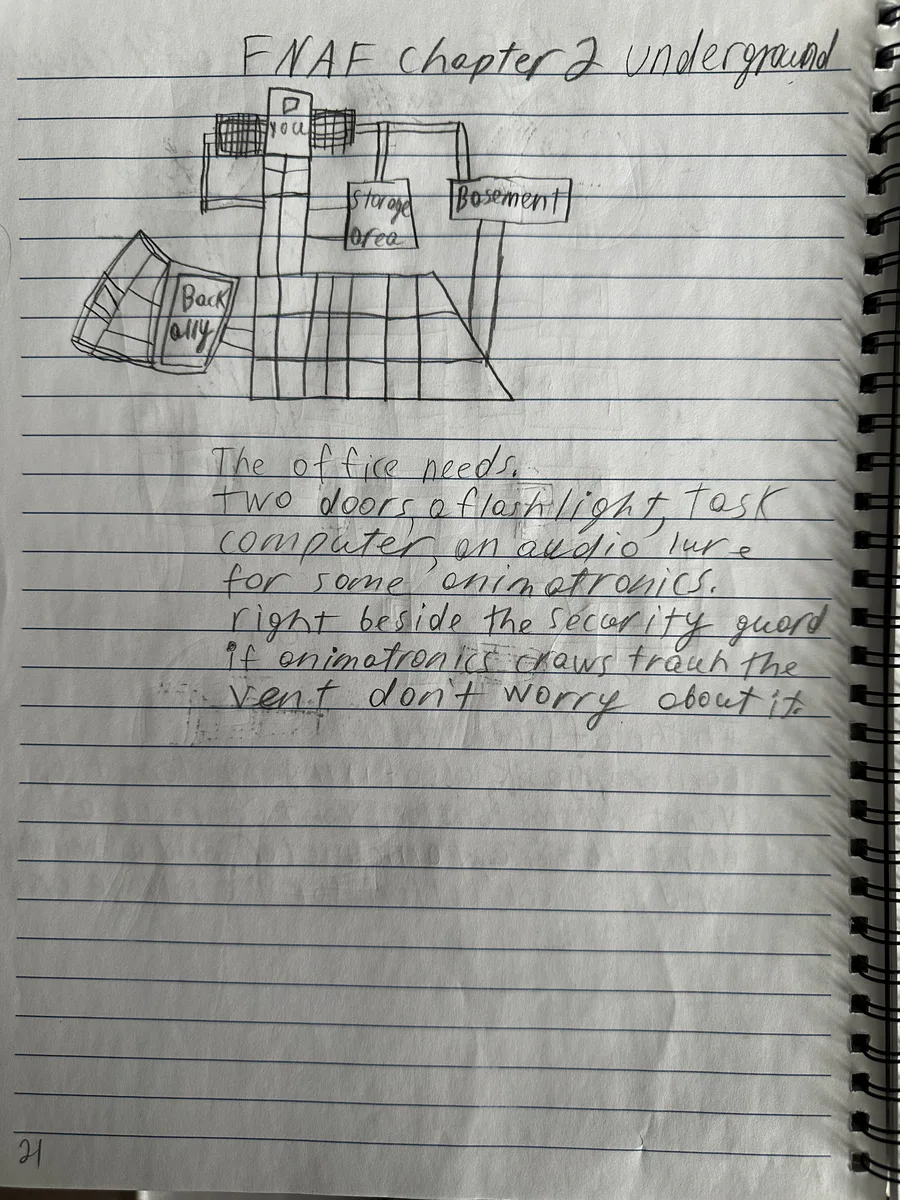 FNAF Chapter 2 underground
you
Storage
area
Basement
Back
ally
The office needs.
two doors, a flashlight, Task
computer, an audio lure
for some animatronics.
right beside the security guard
if animatronics craws trauh the
vent don't worry about it.
21